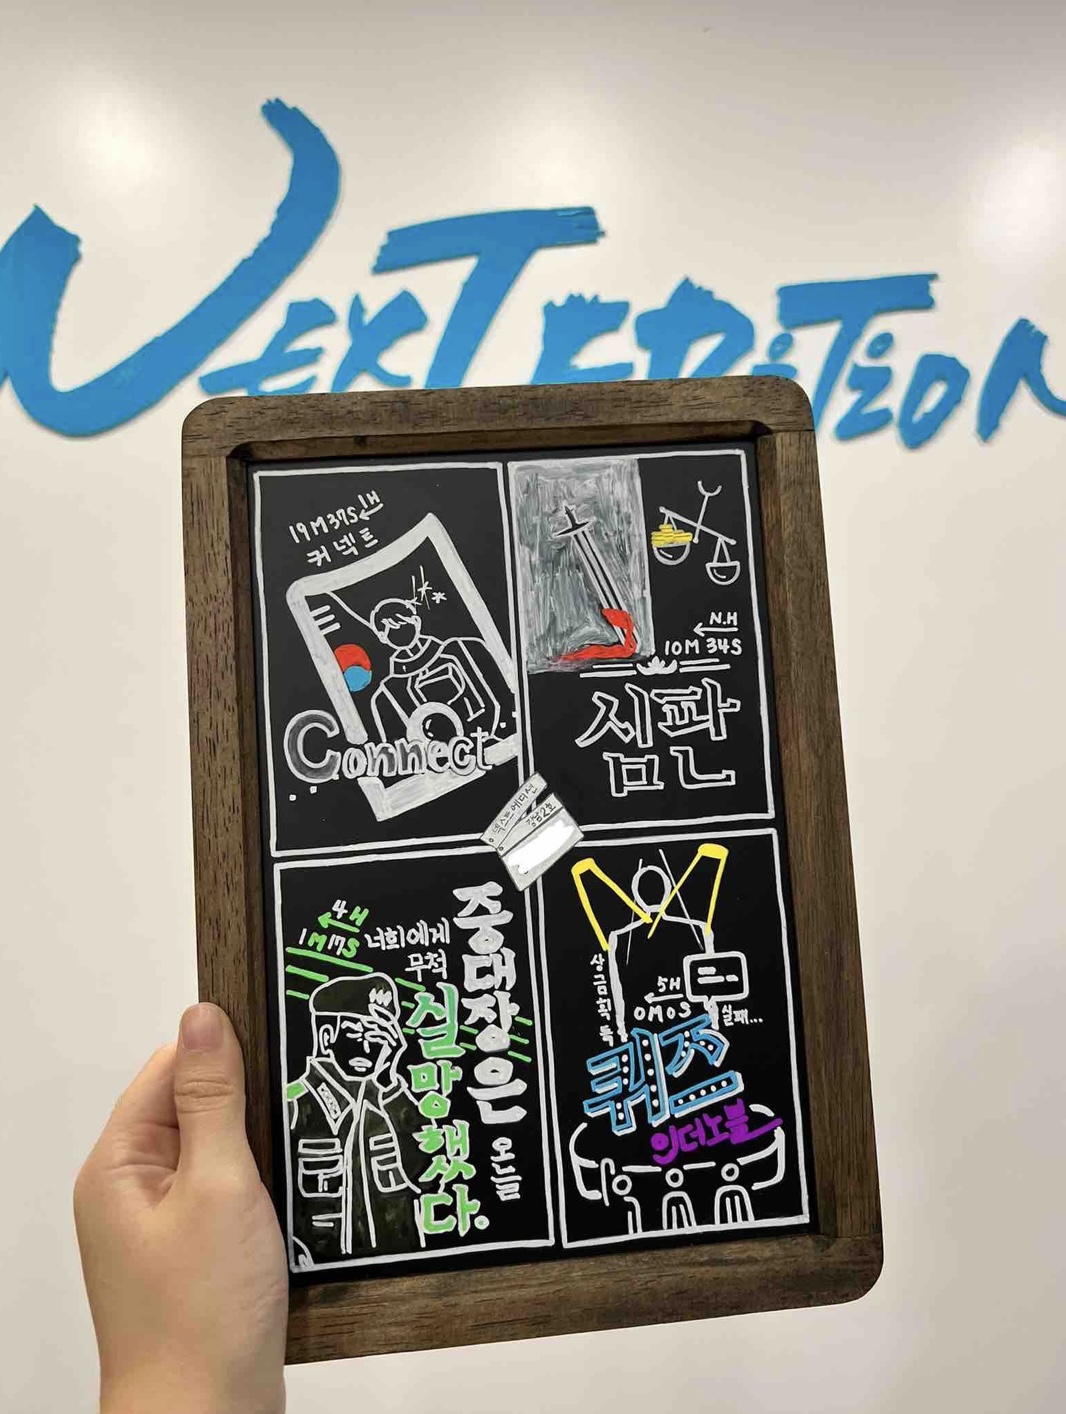 NEXT EDITION
1H
19M 37S
커넥트
Connect
N.H
10M 34S
심판
넥스트에디션
강남2호
4H
1M 17S
중대장은
너희에게
무척
실망했다.
오늘
상금획득
5H
0M 0S
실패...
퀴즈
인더노블